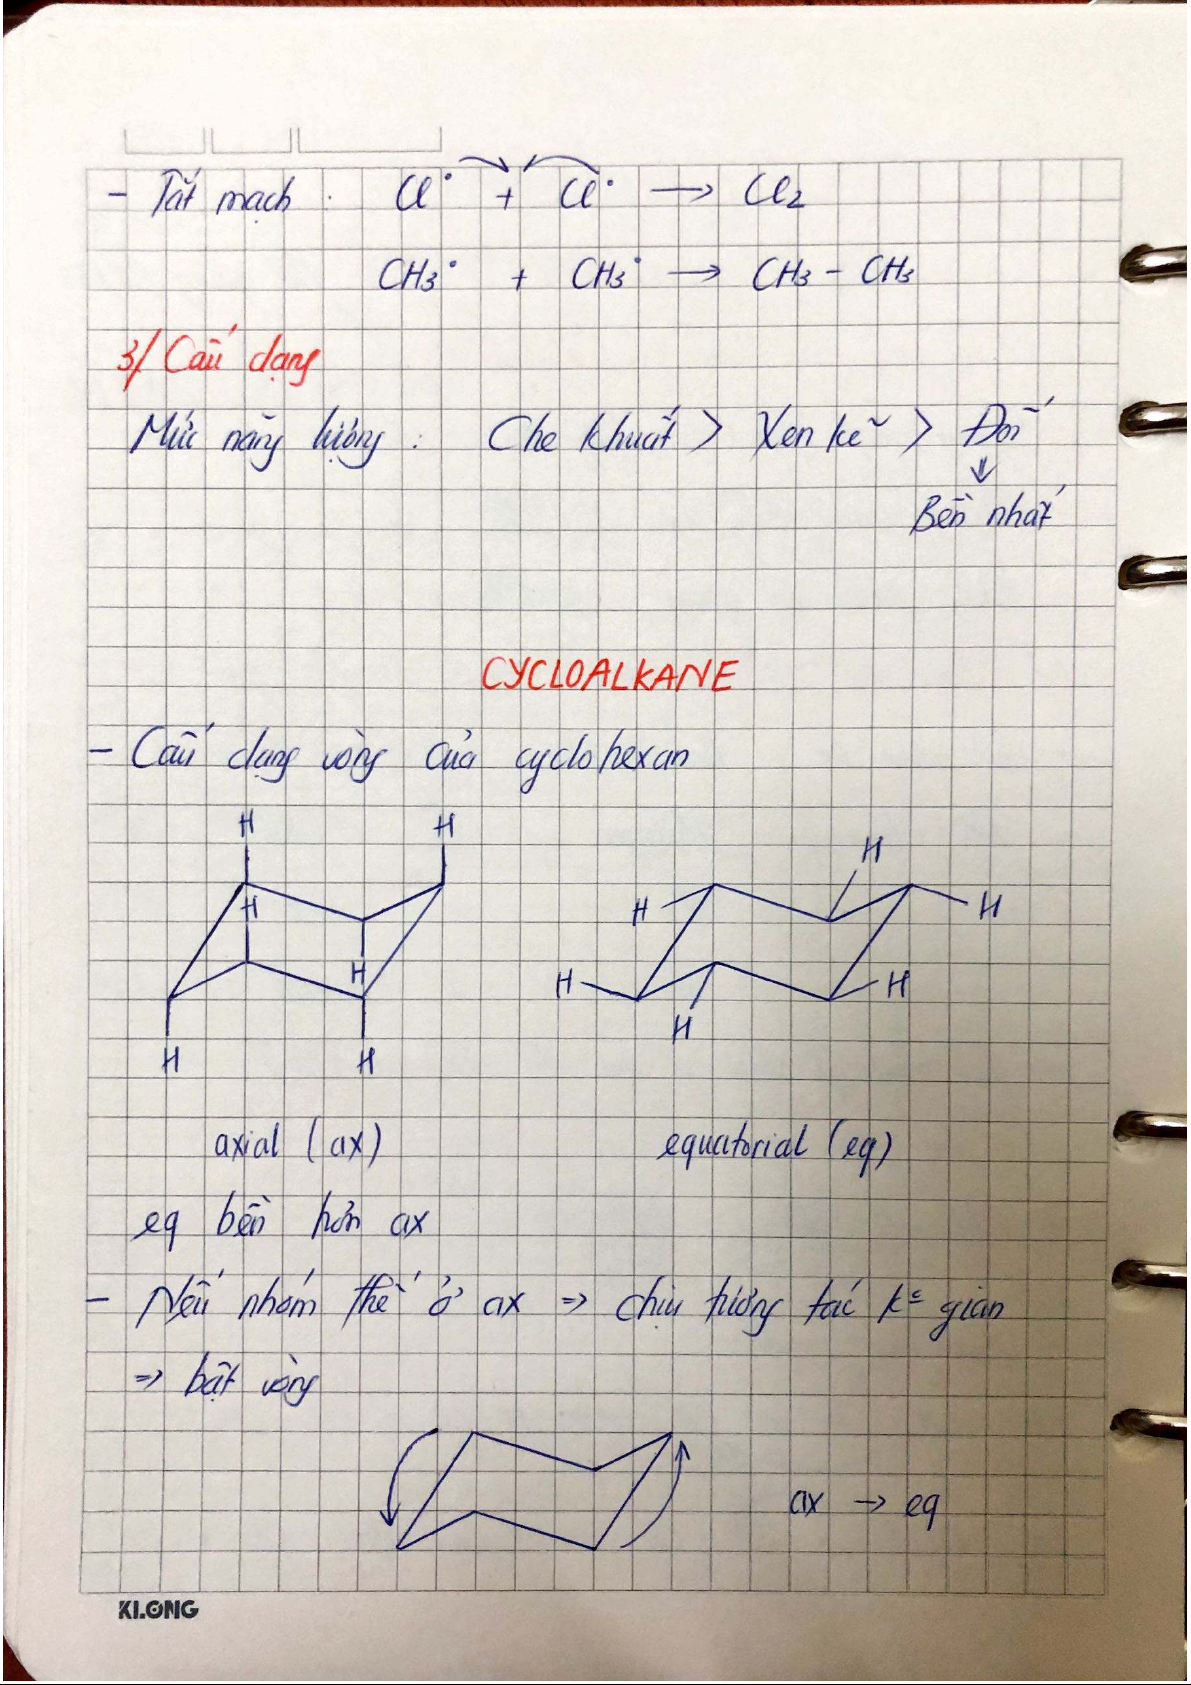 - Tắt mạch : Cl• + Cl• → Cl₂
CH₃• + CH₃• → CH₃ - CH₃
3/ Cấu dạng
Mức năng lượng : Che khuất > Xen kẽ > Đối
⇓
Bền nhất
CYCLOALKANE
- Cấu dạng vòng của cyclohexan
H H H
H H H
H H
H H
H H
axial (ax) equatorial (eq)
eq bền hơn ax
- Nếu nhóm thế ở ax ⇒ chịu tương tác kᶜ gian
⇒ bật vòng
ax → eq
KLONG